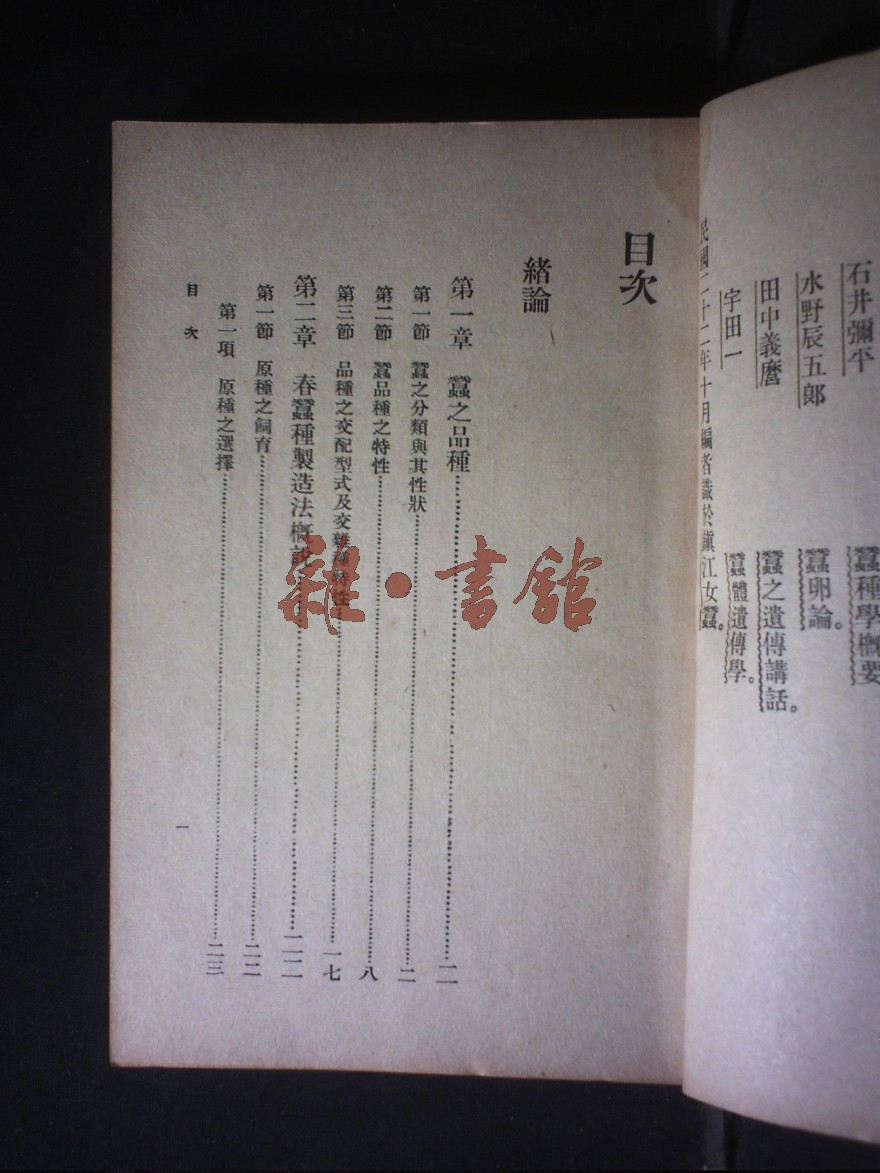 石井彌平 蠶種學槪要
水野辰五郎 蠶卵論。
田中義麿 蠶之遺傳講話。
宇田一 蠶體遺傳學。
民國二十二年十月編者識於鎭江女蠶。
目次
緒論
第一章 蠶之品種……二
第一節 蠶之分類與其性狀……二
第二節 蠶品種之特性……八
第三節 品種之交配型式及交雜種特性……一七
第二章 春蠶種製造法槪說……二二
第一節 原種之飼育……二二
第一項 原種之選擇……二三
目次
一
雜·書館